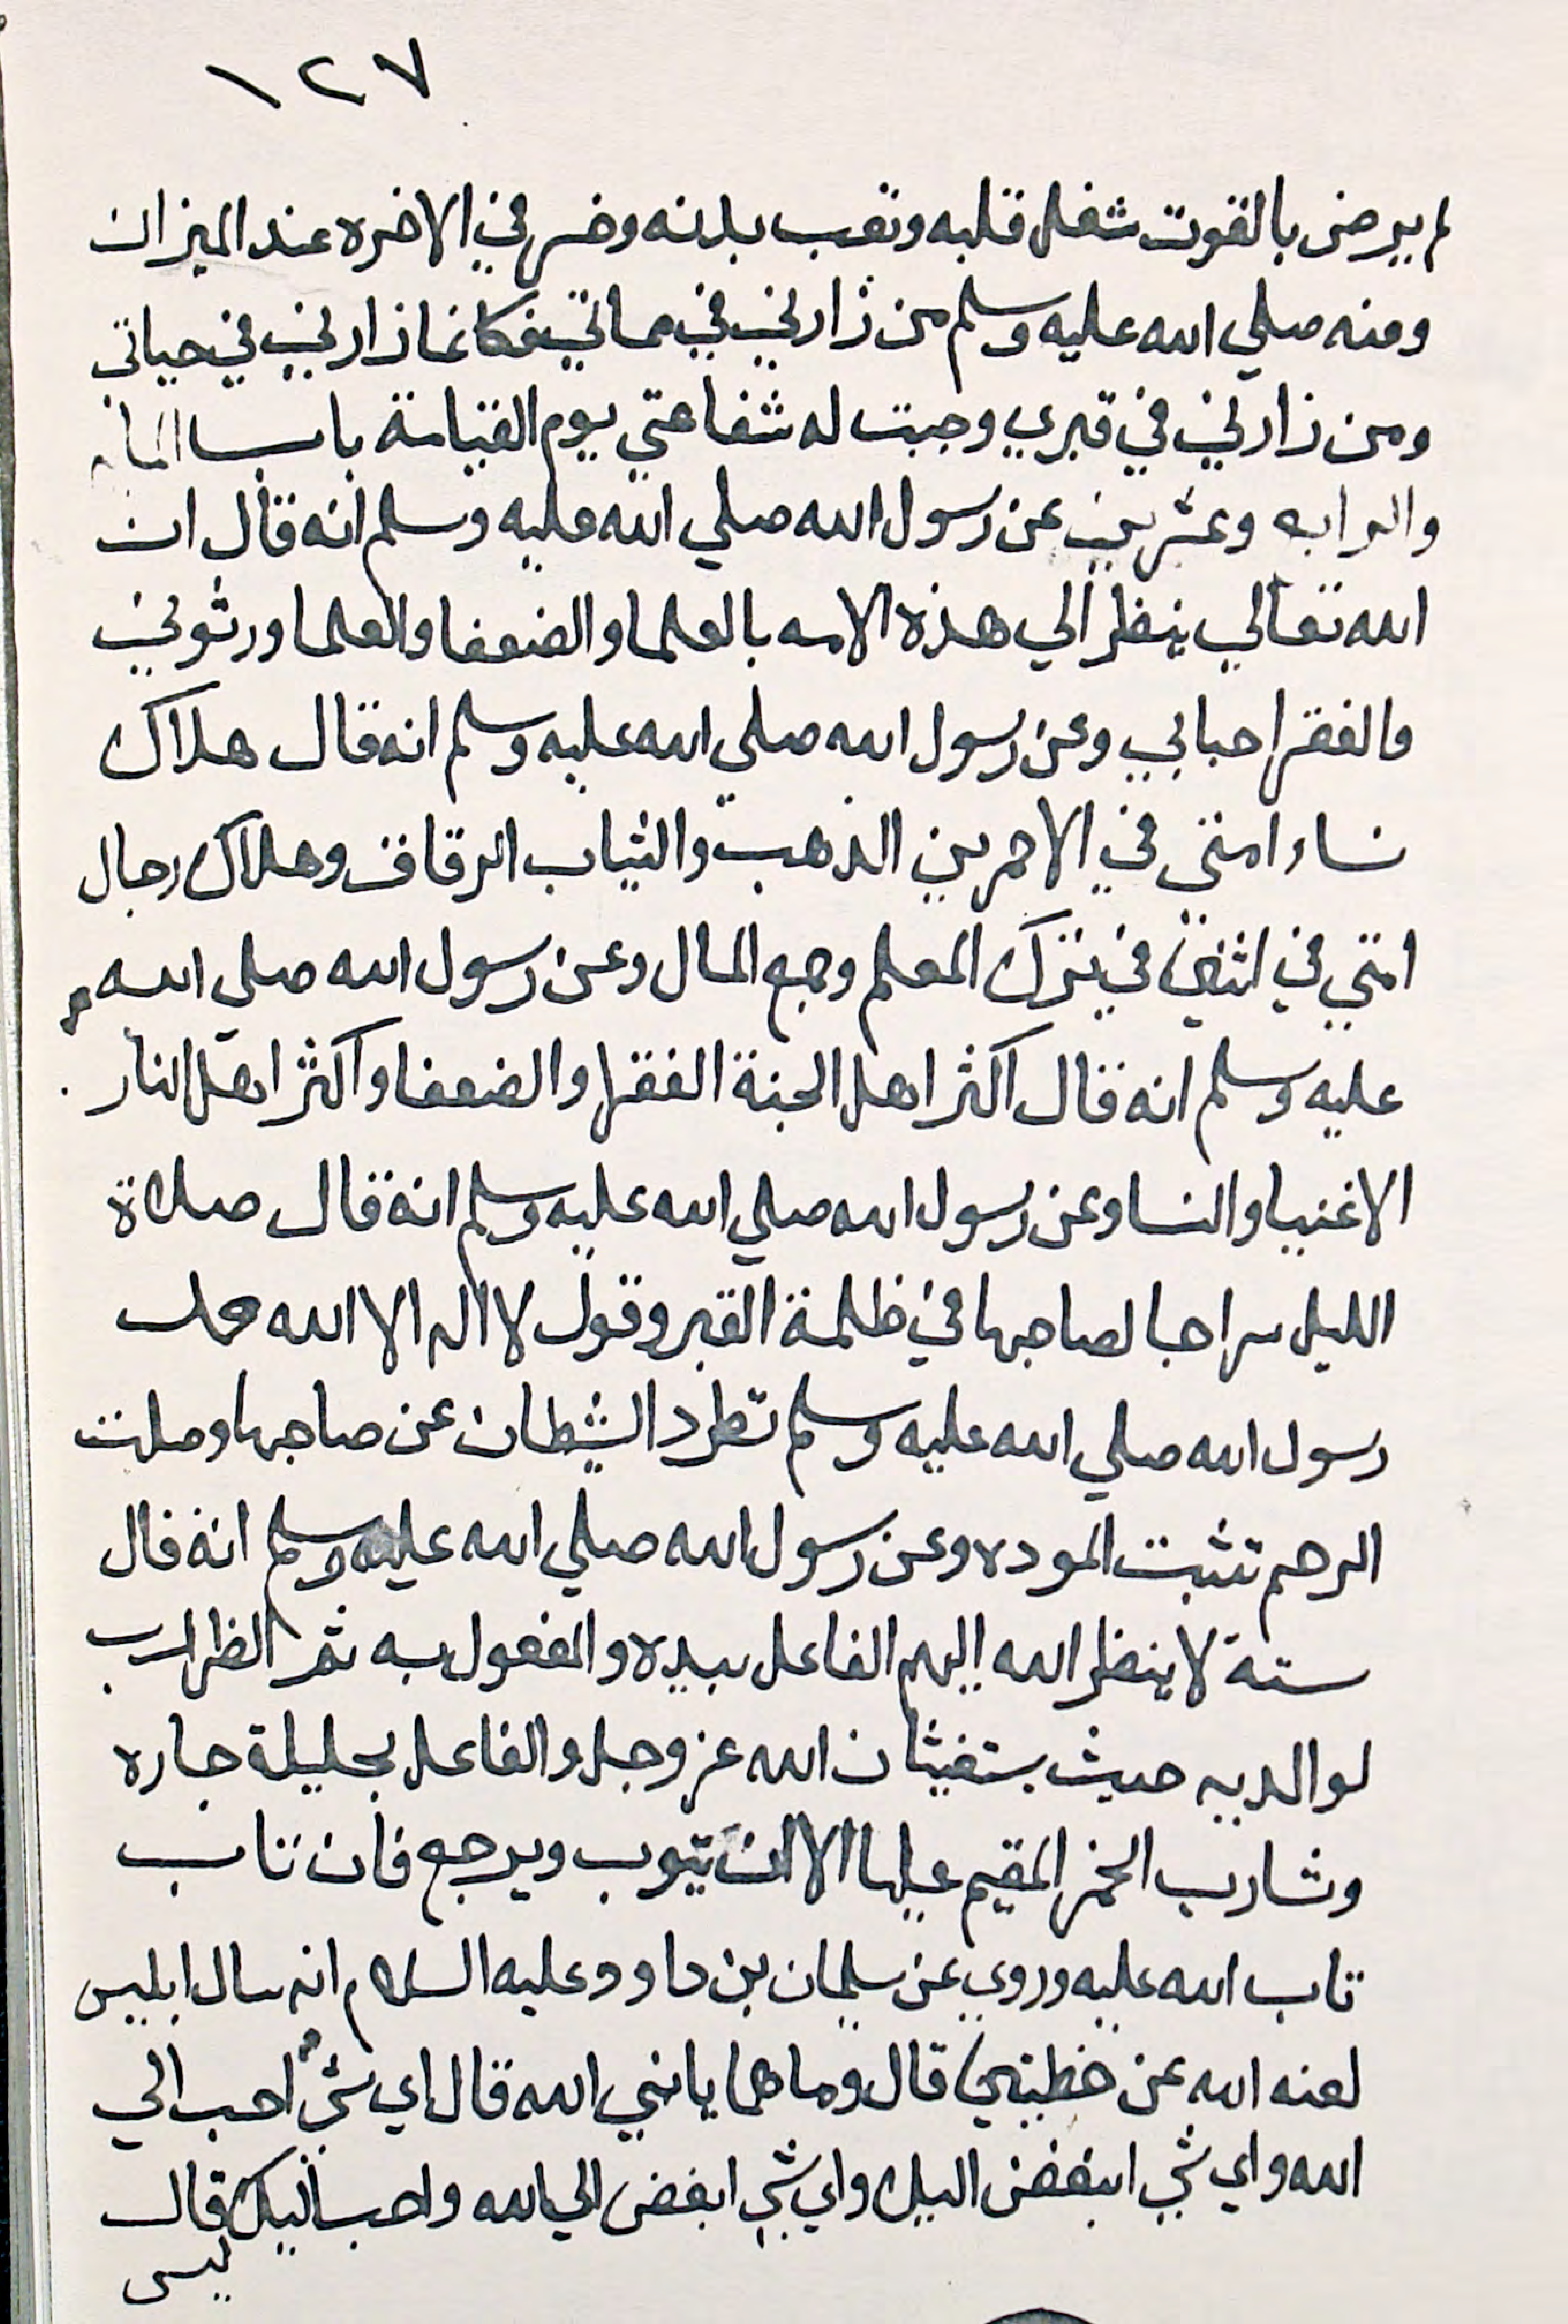 ١٢٧
لم يرض بالقوت شغل قلبه وتعب بدنه وخسر في الاخره عند الميزان
ومنه صلي الله عليه وسلم من زارني في مماتي فكانما زارني في حياتي
ومن زارني في قبري وجبت له شفاعتي يوم القيامة باب
والرابه وعشرين عن رسول الله صلي الله عليه وسلم انه قال ان
الله تعالي ينظر الي هذه الامه بالعلما والضعفا والعلما ورثوني
والفقرا احبابي وعن رسول الله صلي الله عليه وسلم انه قال هلاك
نساء امتي في الاحمرين الذهب والثياب الرقاق وهلاك رجال
امتي في اثنين في ترك المعلم وجمع المال وعن رسول الله صلي الله
عليه وسلم انه قال اكثر اهل الجنة الفقرا والضعفا واكثر اهل النار
الاغنيا والنسا وعن رسول الله صلي الله عليه وسلم انه قال صلاة
الليل سراجا لصاحبها في ظلمة القبر وقول لا اله الا الله محمد
رسول الله صلي الله عليه وسلم تطرد الشيطان عن صاحبها وصلت
الرحم تثبت الموده وعن رسول الله صلي الله عليه وسلم انه قال
ستة لا ينظر الله اليهم الفاعل بيده والمفعول به ثم الظارب
لوالديه حيث يستغيثان الله عز وجل والفاعل بحليلة جاره
وشارب الخمر المقيم عليها الا ان يتوب ويرجع فان تاب
تاب الله عليه وروي عن سليمان بن داوود عليه السلام انه سال ابليس
لعنه الله عن خطيتين قال وما هما يا نبي الله قال اي شي احب الي
الله واي شي ابغض اليك واي شي ابغض الي الله واحب اليك قال
ليس